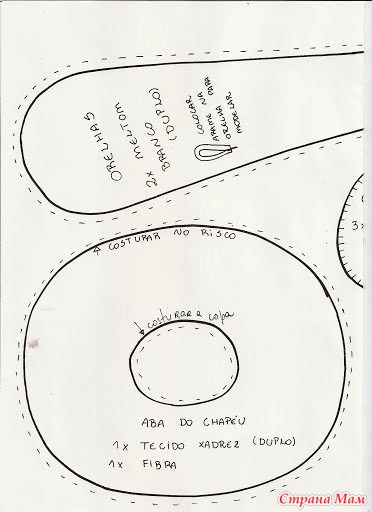 ORELHAS
2x MELTOM
BRANCO
(DUPLO)
COLOCAR
ARAME NA
ORELHA PARA
MODELAR
COSTURAR NO RISCO
3x
costurar a copa
ABA DO CHAPÉU
1x TECIDO XADREZ (DUPLO)
1x FIBRA
Страна Мам